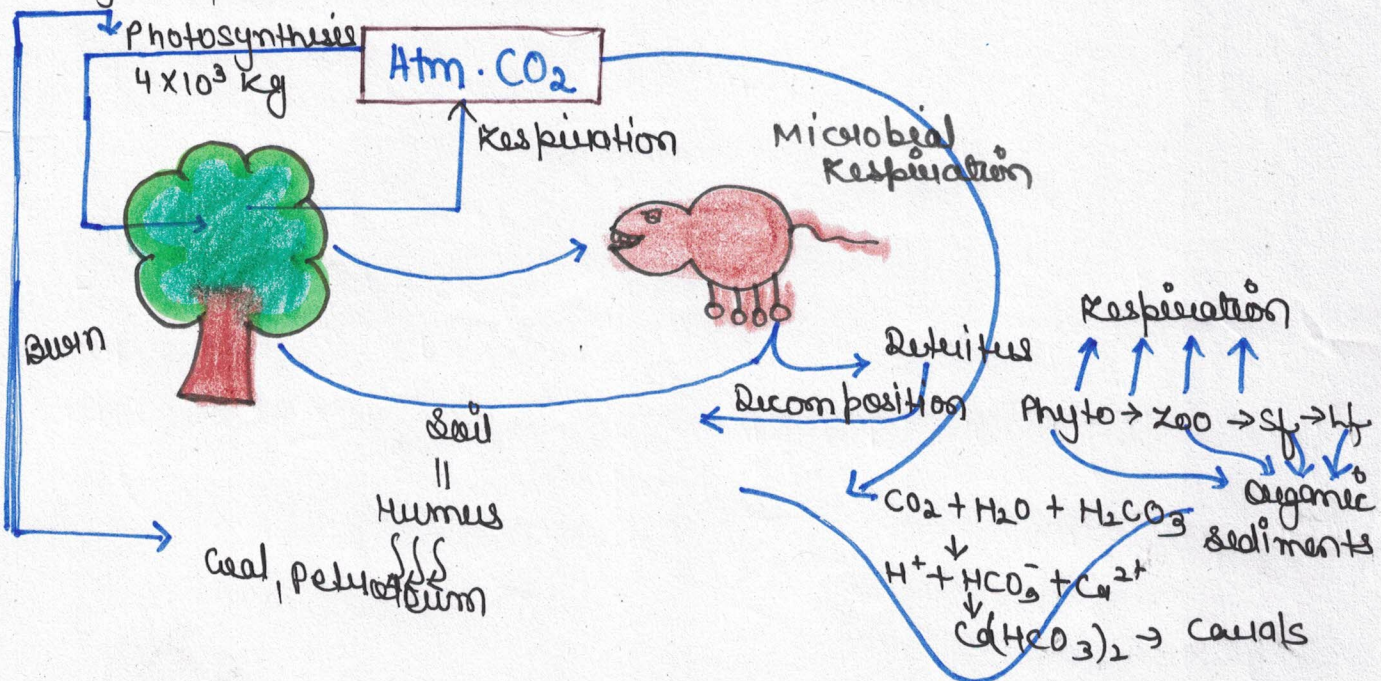 Photosynthesis
4 x 10³ kg
Atm. CO₂
Respiration
Microbial
Respiration
Burn
Detritus
Decomposition
Respiration
Phyto → Zoo → Sf → Lf
Organic
sediments
Soil
||
Humus
Coal, Petroleum
CO₂ + H₂O + H₂CO₃
↓
H⁺ + HCO₃⁻ + Ca²⁺
↓
Ca(HCO₃)₂ → Corals